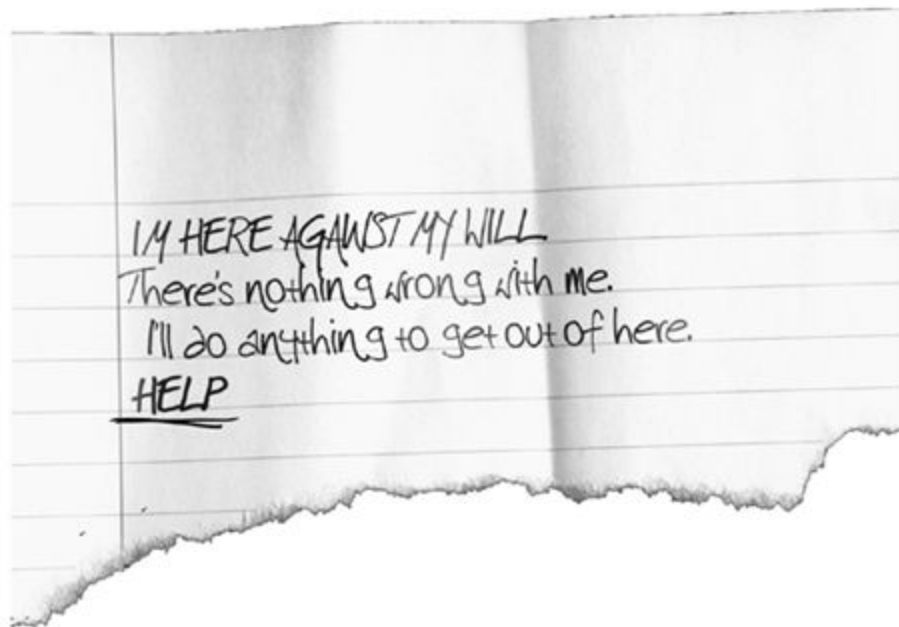 IM HERE AGAINST MY WILL
There's nothing wrong with me.
I'll do anything to get out of here.
HELP